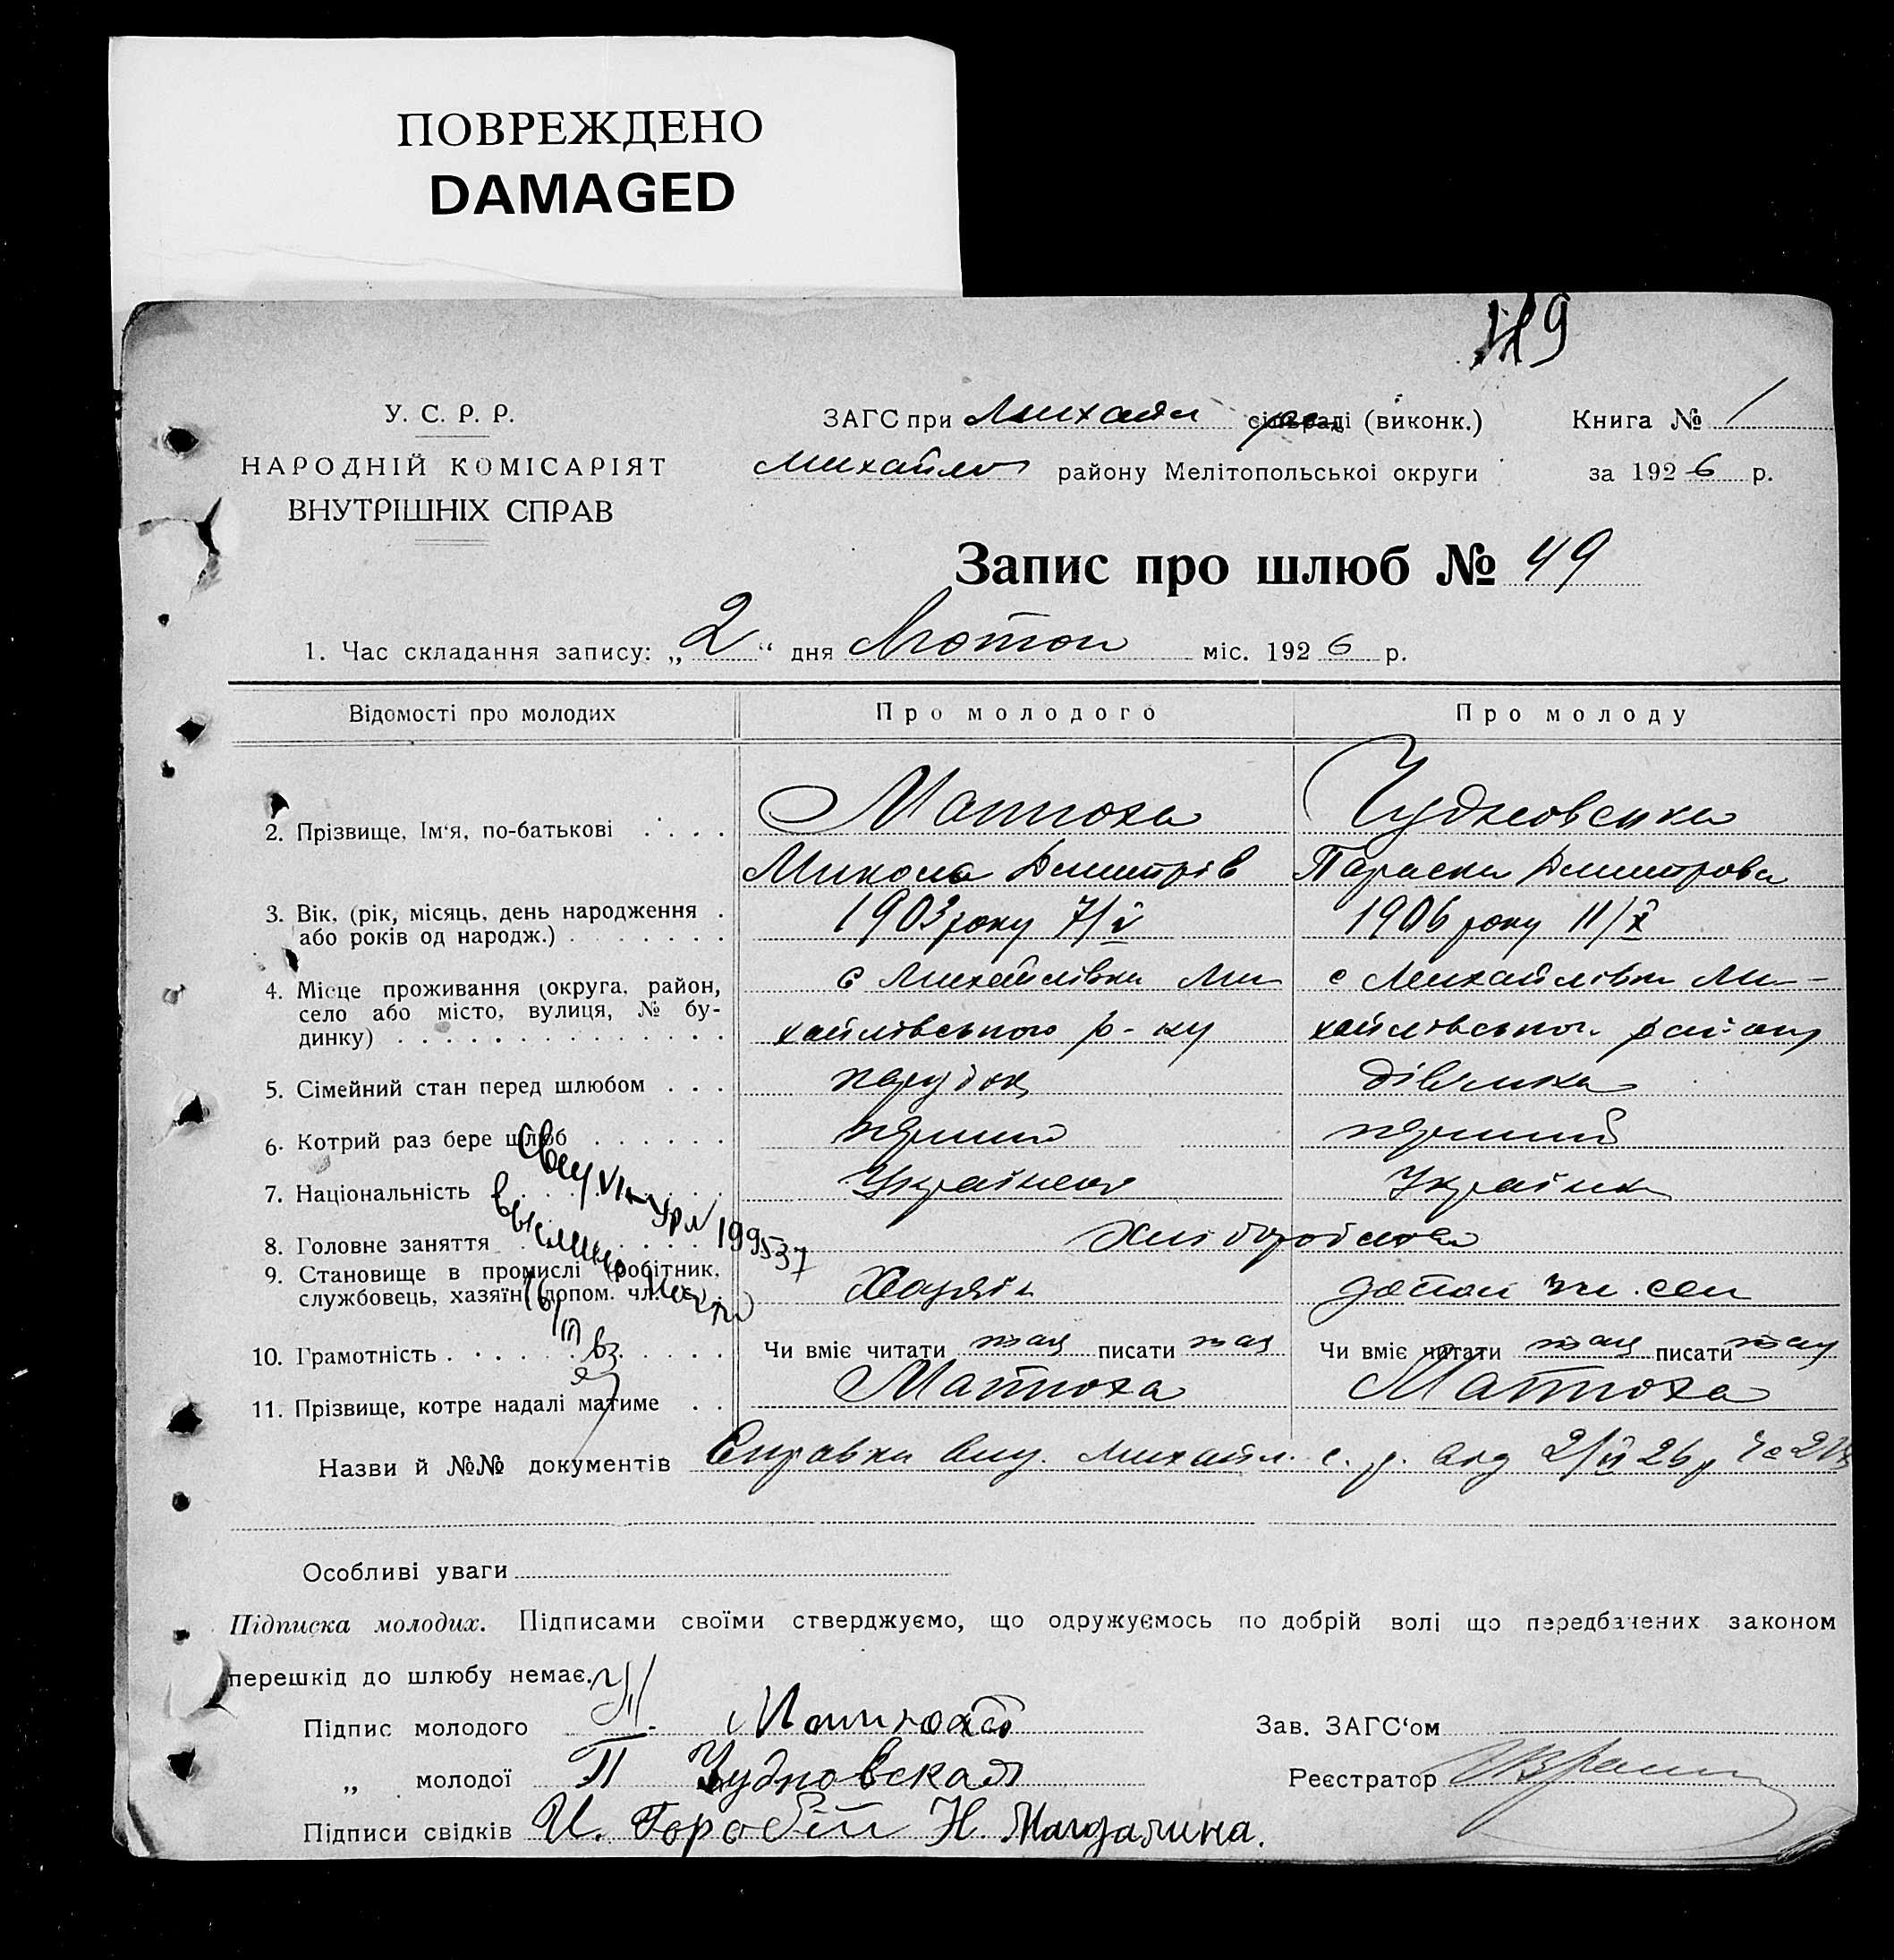 ПОВРЕЖДЕНО
DAMAGED
49
У. С. Р. Р.
НАРОДНІЙ КОМІСАРІЯТ
ВНУТРІШНІХ СПРАВ
ЗАГС при Михайл сільраді (виконк.) Книга № 1
Михайлов району Мелітопольської округи за 1926 р.
Запис про шлюб № 49
1. Час складання запису: „2“ дня Лютого міс. 1926 р.
Відомості про молодих Про молодого Про молоду
2. Прізвище, Ім'я, по-батькові Матюха Чудновська
Микола Дмитрів Параска Дмитрова
3. Вік, (рік, місяць, день народження або років од народж.) 1903 року 7/V 1906 року 11/X
4. Місце проживання (округа, район, село або місто, вулиця, № будинку) с Михайлівка Ми с Михайлівка Ми-
хайлівського р-ну хайлівського району
5. Сімейний стан перед шлюбом парубок дівчина
6. Котрий раз бере шлюб перший перший
7. Національність Українец Українка
8. Головне заняття Хліборобство
9. Становище в промислі (робітник, службовець, хазяїн, допом. чл. сем.) Хазяїн допом чл. сем
10. Грамотність Чи вміє читати так писати так Чи вміє читати так писати так
11. Прізвище, котре надалі матиме Матюха Матюха
199537
Назви й №№ документів Справка Михайл. с. р. від 2/II 26 р
Особливі уваги
Підписка молодих. Підписами своїми стверджуємо, що одружуємось по добрій волі що передбачених законом
перешкід до шлюбу немає.
Підпис молодого Матюха Зав. ЗАГС'ом
„ молодої П Чудновская Реєстратор
Підписи свідків И. Горобій Н. Магдалина.